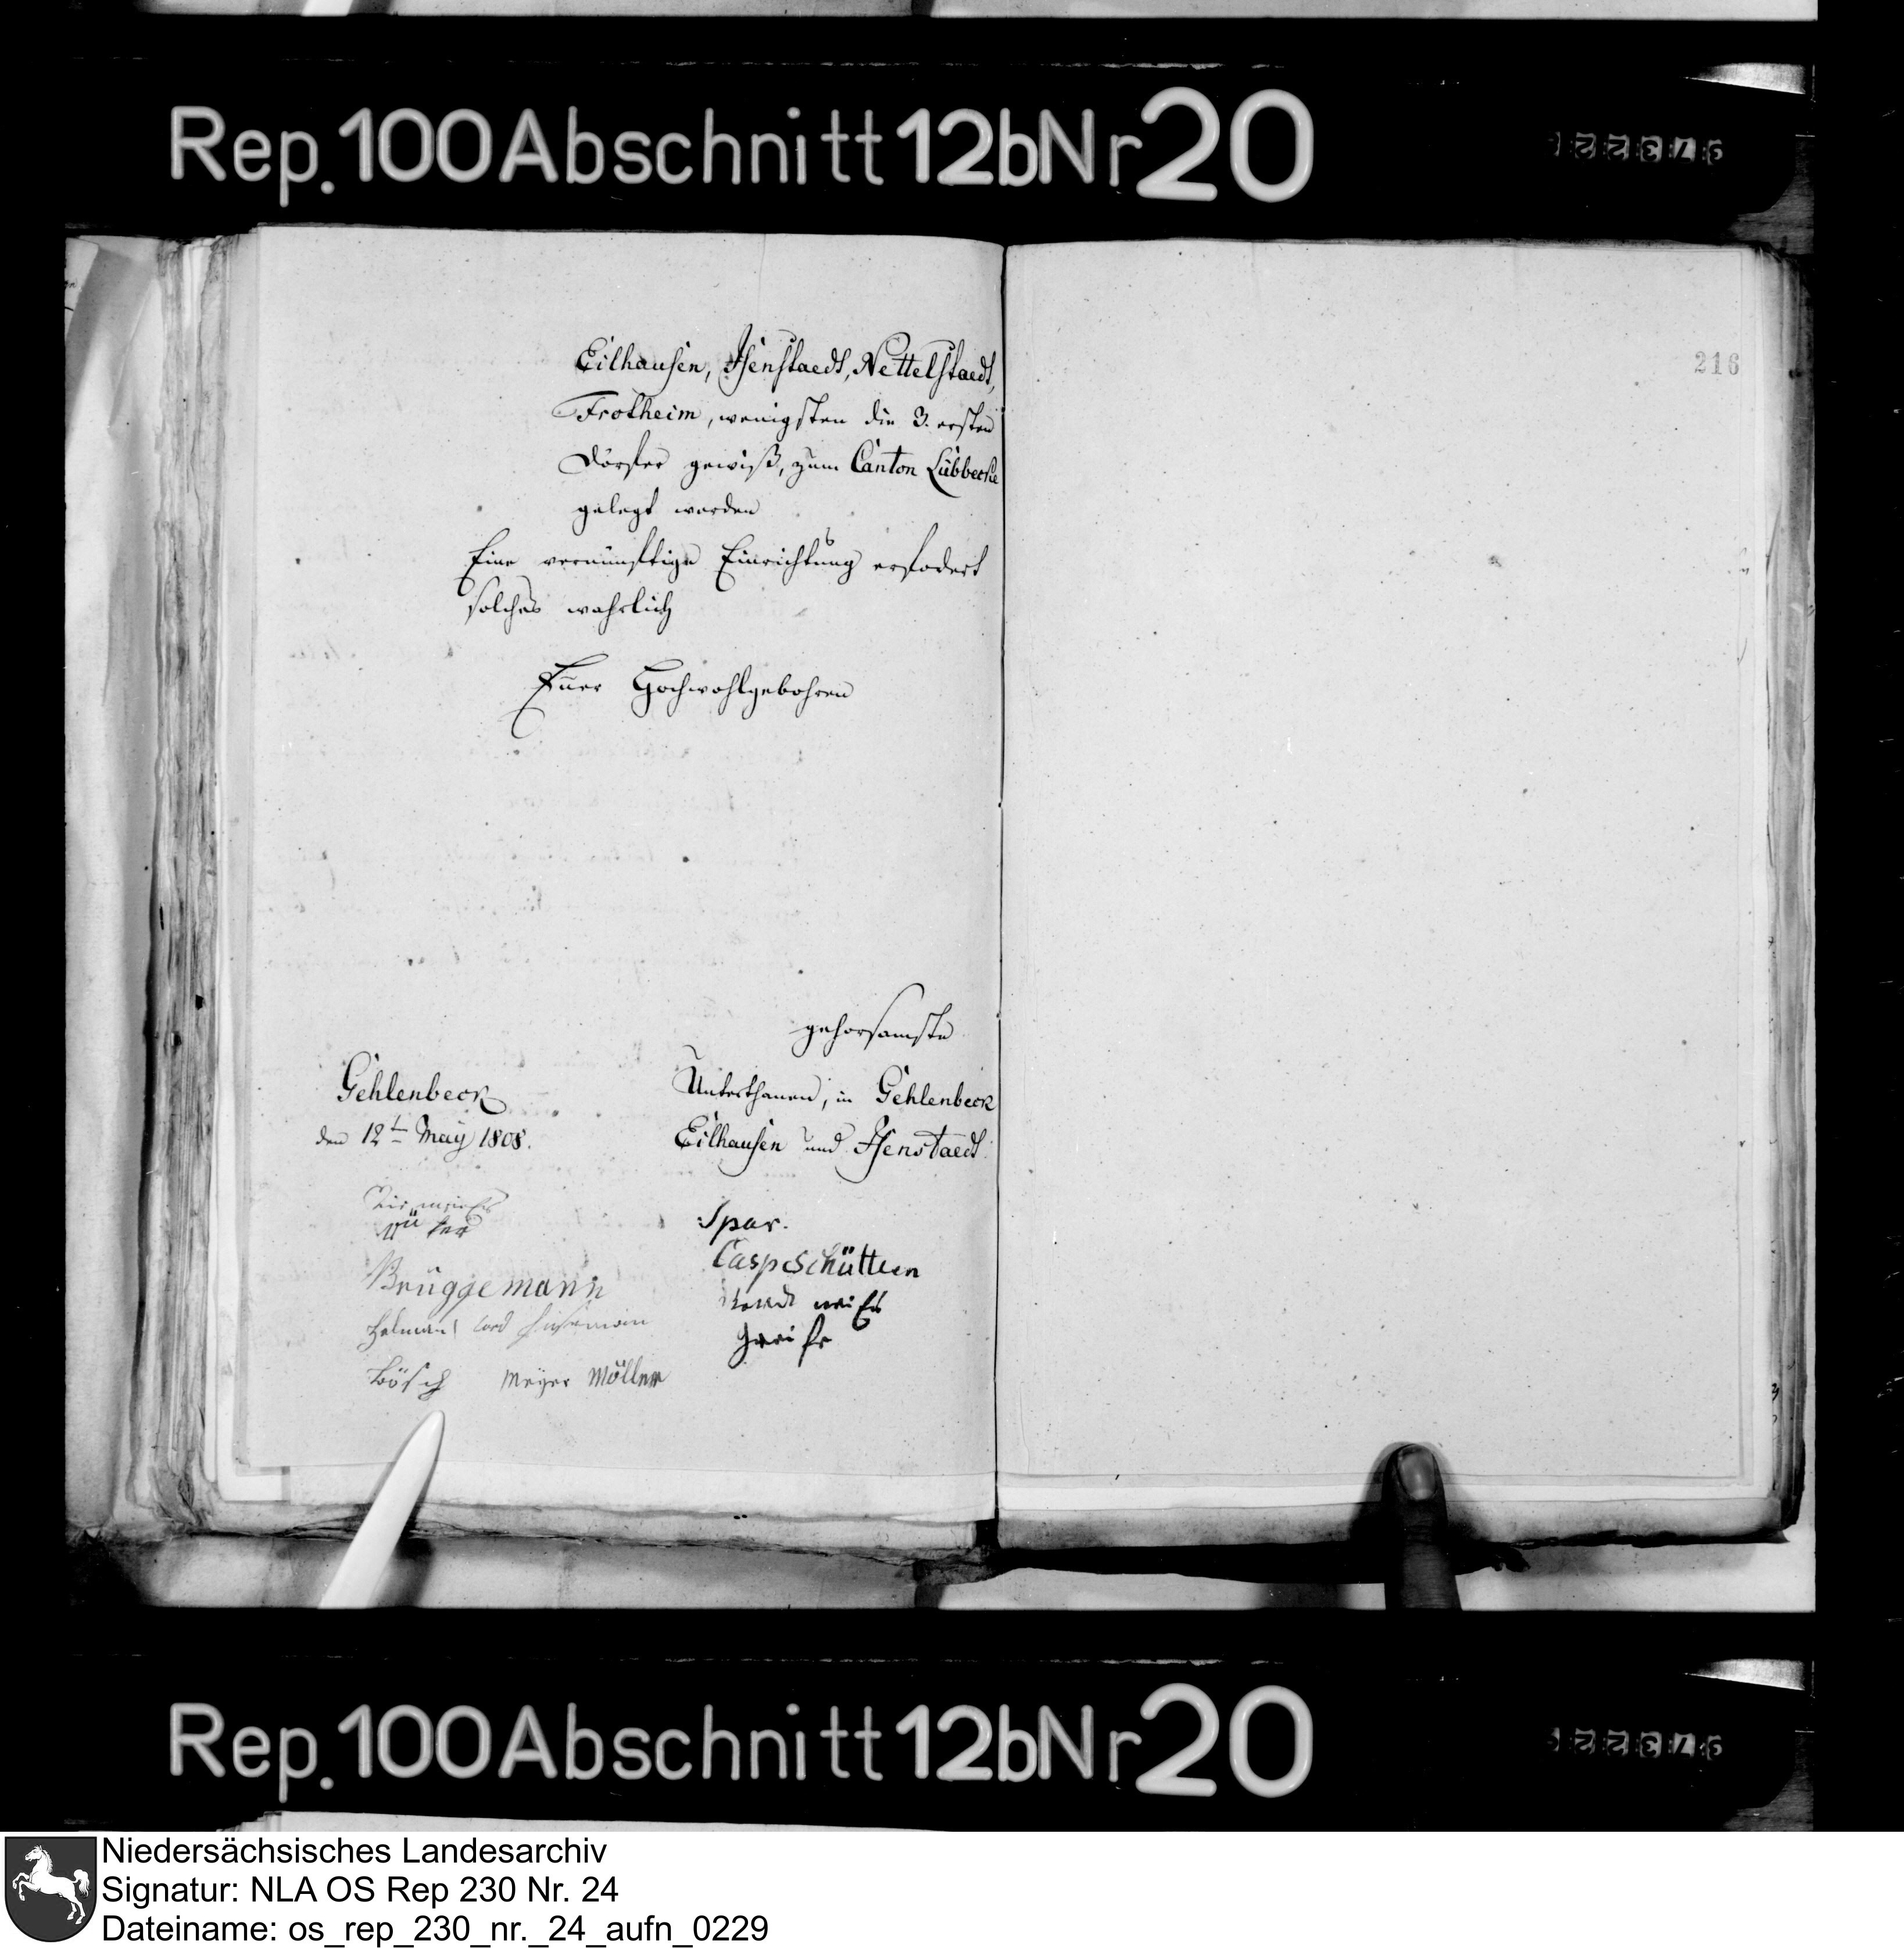 Rep. 100 Abschnitt 12b Nr 20
Eilhausen, Isenstaedt, Nettelstaedt,
Frotheim, wenigsten die 3. ersten
Dörfer gewiß, zum Canton Lübbecke
gelegt werden
Eine vernünftige Einrichtung erfodert
solches wahrlich
Euer Hochwohlgebohren
216
gehorsamste
Unterthanen, in Gehlenbeck
Eilhausen und Isenstaedt
Gehlenbeck
den 12ten May 1808.
Brüggemann
Bösch Meyer Möller
Spar.
Casp Schütten
Rep. 100 Abschnitt 12b Nr 20
Niedersächsisches Landesarchiv
Signatur: NLA OS Rep 230 Nr. 24
Dateiname: os_rep_230_nr._24_aufn_0229